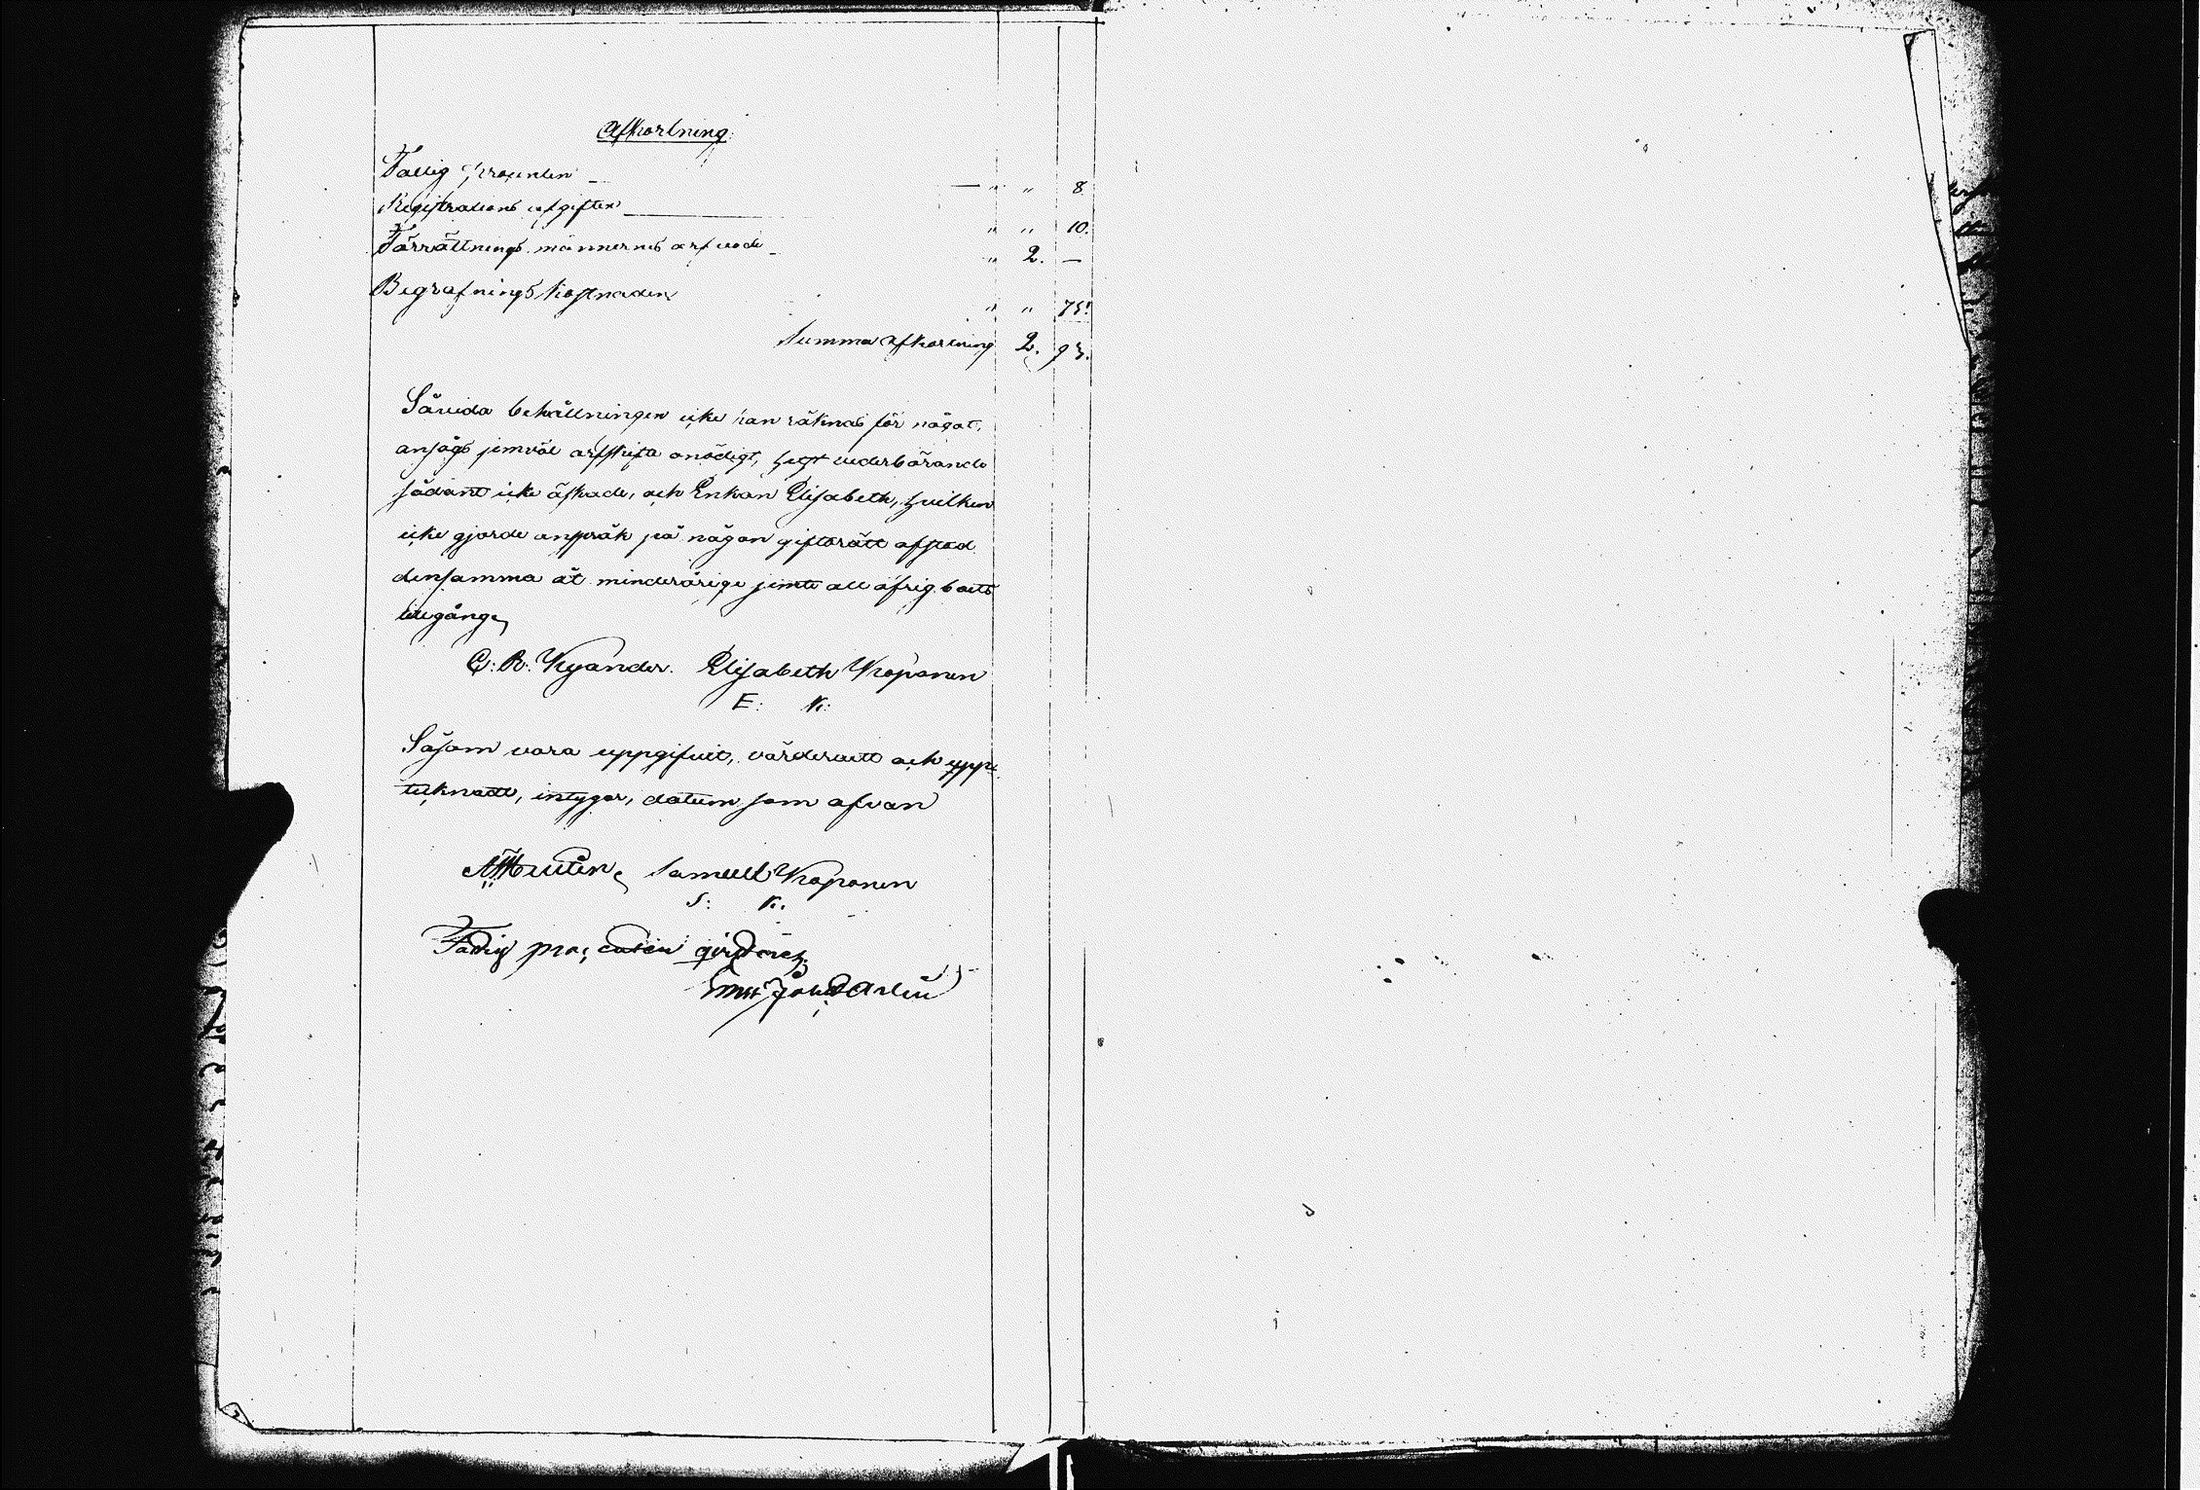 Afkortning:
Fattig procenten — " " 8
Registrations afgiften " " 10.
Förrättnings männernes arfvode " 2. —
Begrafnings kostnaden " " 75.
Summa afkortning 2. 93.
Såvida behållningen icke kan räknas för något,
ansågs jemväl arfskifte onödigt, helst vederbörande
sådant icke äskade, och Enkan Elisabeth, hvilken
icke gjorde anspråk på någon giftorätt afstod
densamma åt minderårige jemte all öfrig boets
tillgång,
C: R: Kyander. Elisabeth Kroponen
E: K:
Såsom vara uppgifvit, värderadt och upp-
tecknadt, intygar, datum som ofvan
Samuel Kroponen
S: K:
Fattig procenten